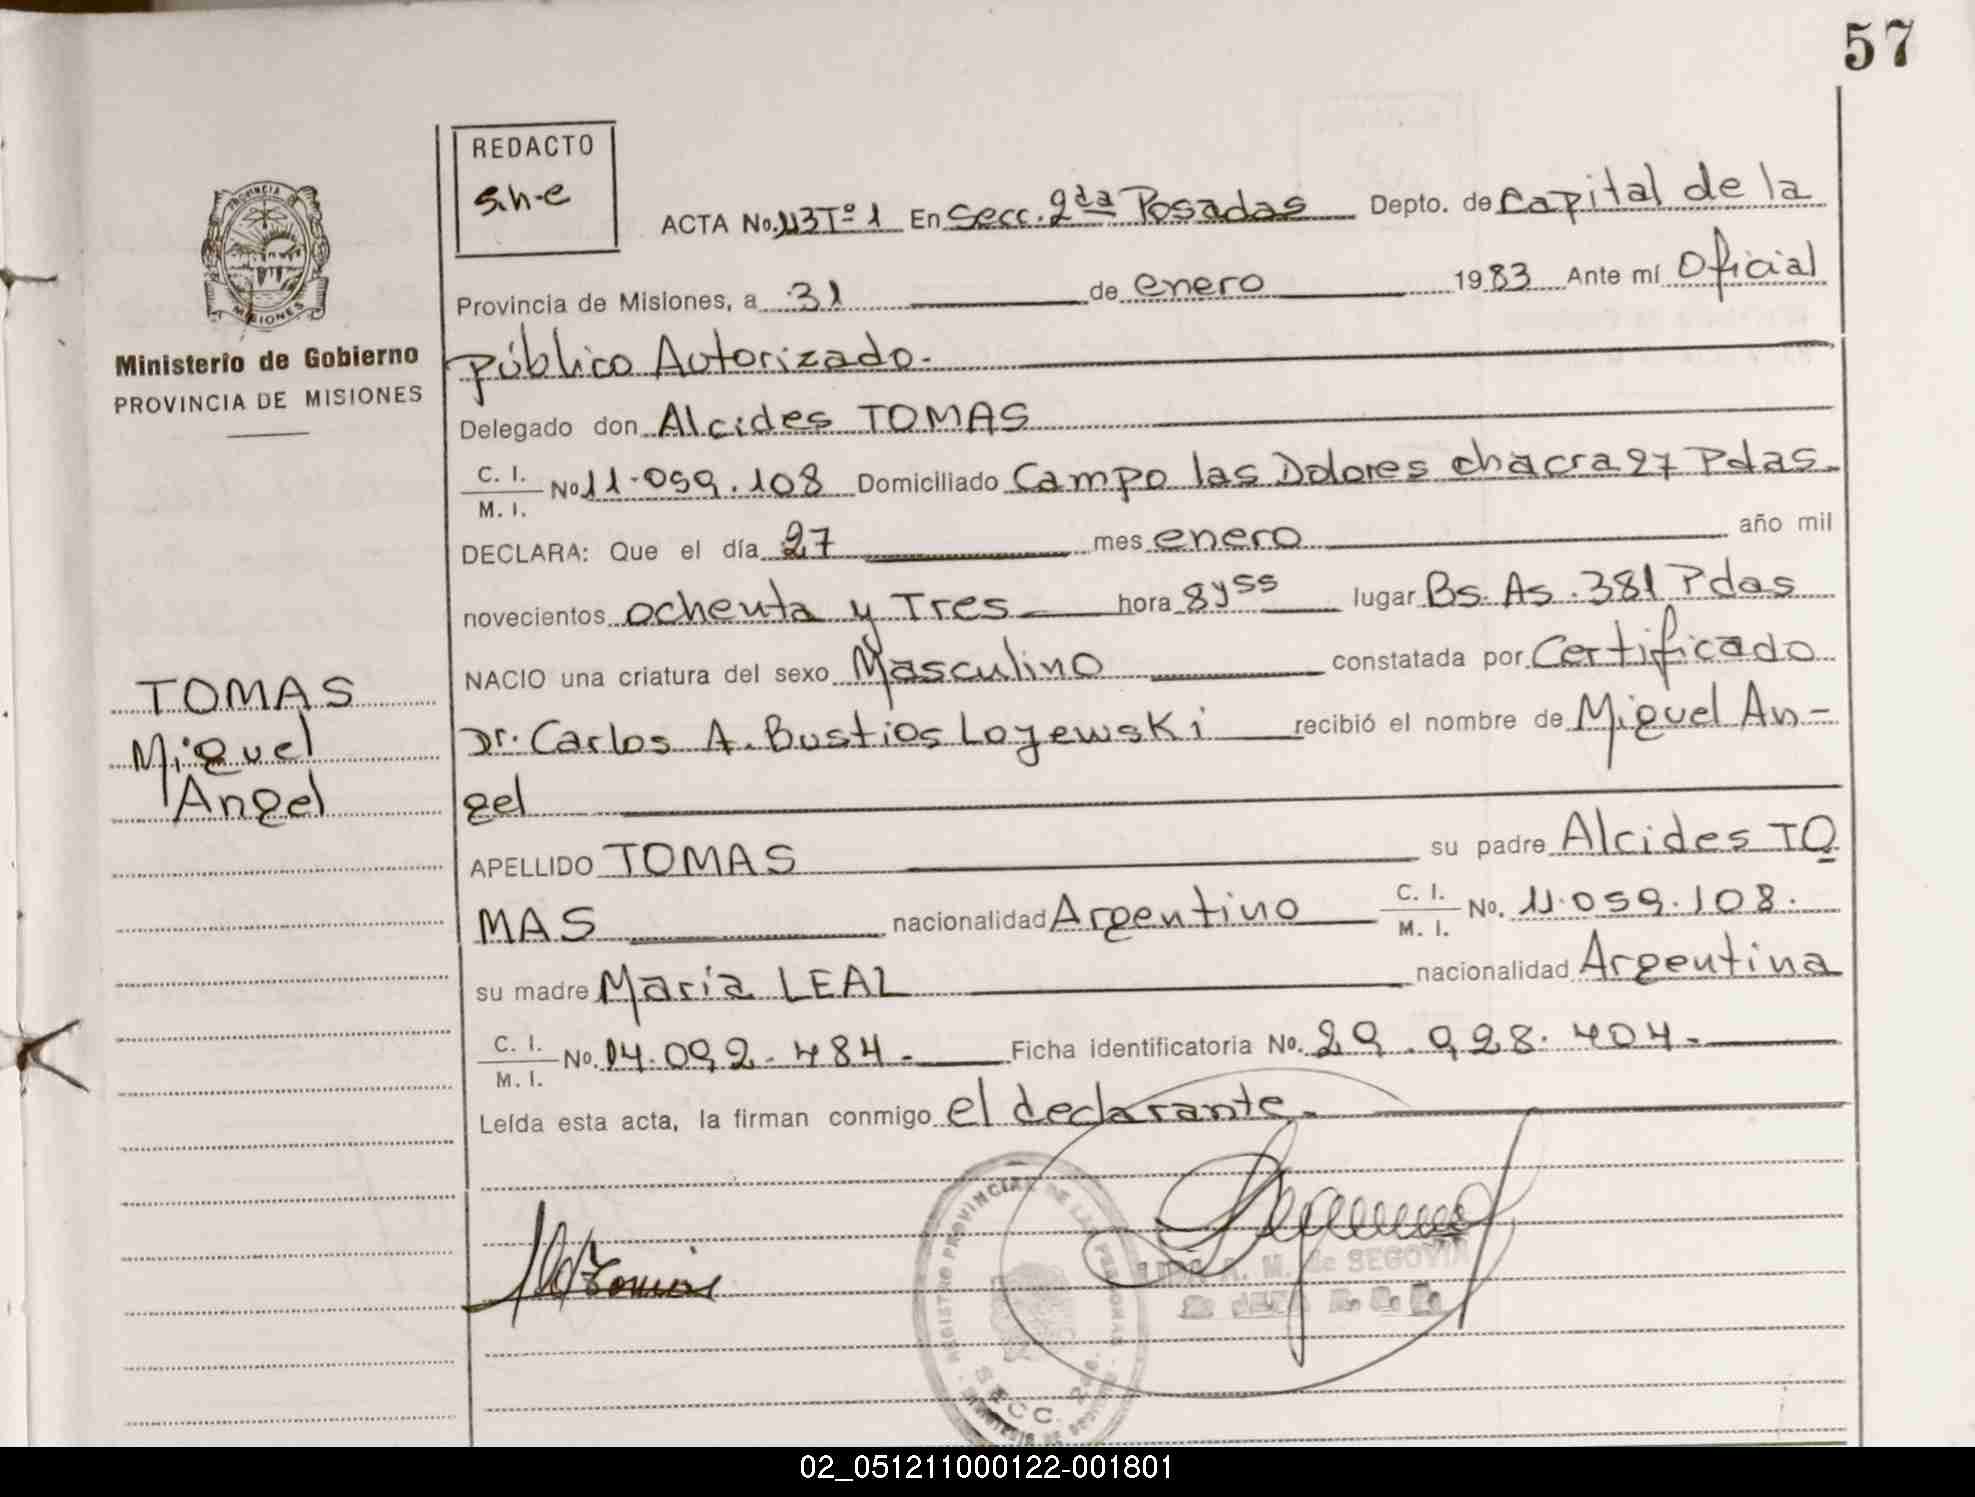 57
REDACTO
s.h-e
ACTA No. 113 Tº 1 En Secc. 2da Posadas Depto. de Capital de la
Provincia de Misiones, a 31 de enero 1983 Ante mí Oficial
Público Autorizado.
Delegado don Alcides TOMAS
C. I.
M. I.
No 11.059.108 Domiciliado Campo las Dolores chacra 27 Pdas.
DECLARA: Que el día 27 mes enero año mil
novecientos ochenta y Tres hora 8 y 55 lugar Bs. As. 381 Pdas
NACIO una criatura del sexo Masculino constatada por Certificado
Dr. Carlos A. Bustios Loyewski recibió el nombre de Miguel An-
gel
APELLIDO TOMAS su padre Alcides TO
MAS nacionalidad Argentino C. I. M. I. No. 11.059.108.
su madre María LEAL nacionalidad Argentina
C. I.
M. I.
No. 14.092.484.- Ficha identificatoria No. 29.928.404.-
Leída esta acta, la firman conmigo el declarante.
PROVINCIA
MISIONES
Ministerio de Gobierno
PROVINCIA DE MISIONES
TOMAS
Miguel
Angel
REGISTRO PROVINCIAL DE LAS PERSONAS
SECC. 2da.
A. M. de SEGOVIA
JEFA
02_051211000122-001801